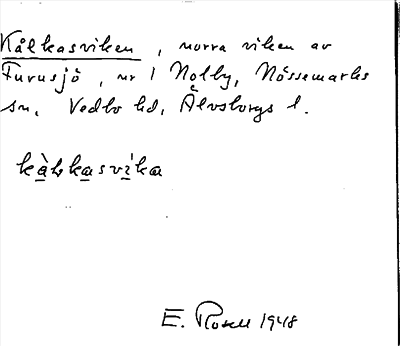 Kålkasviken, norra viken av
Furusjö, nr 1 Nolby, Nössemarks
sn. Vedbo hd, Älvsborgs l.
kàḷkasvi̍ka
E. Rosell 1948